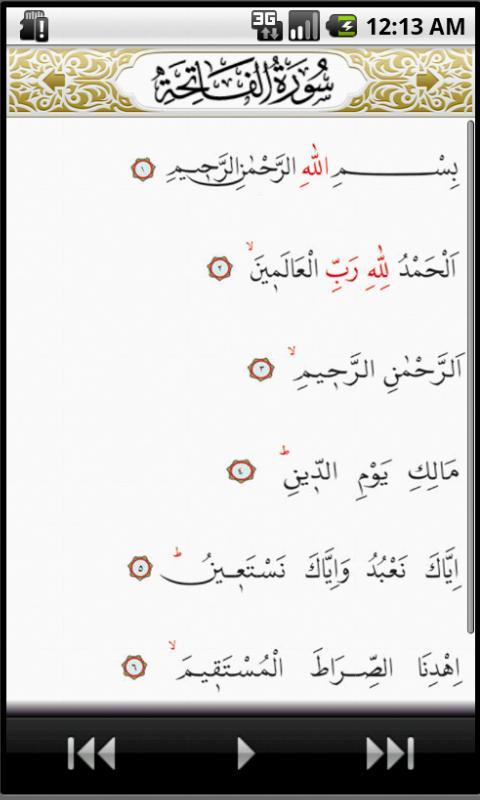 3G 12:13 AM
سُورَةُ الْفَاتِحَةِ
بِسْمِ اللّٰهِ الرَّحْمٰنِ الرَّحِيمِ ١
اَلْحَمْدُ لِلّٰهِ رَبِّ الْعَالَمِينَۙ ٢
اَلرَّحْمٰنِ الرَّحِيمِۙ ٣
مَالِكِ يَوْمِ الدِّينِۜ ٤
اِيَّاكَ نَعْبُدُ وَاِيَّاكَ نَسْتَعِينُۜ ٥
اِهْدِنَا الصِّرَاطَ الْمُسْتَقِيمَۙ ٦